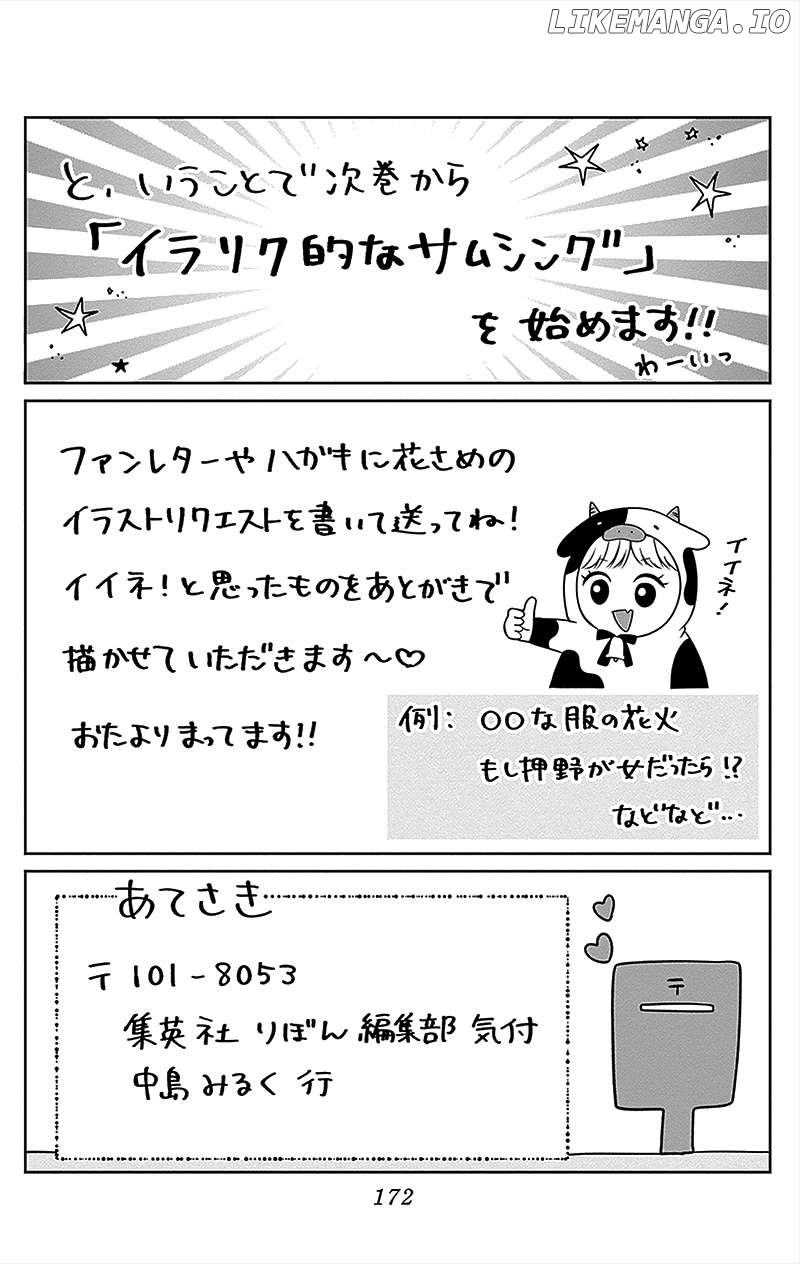 LIKEMANGA.IO
と、いうことで次巻から
「イラリク的なサムシング」
を始めます!!
わーいっ
ファンレターやハガキに花さめの
イラストリクエストを書いて送ってね!
イイネ!と思ったものをあとがきで
描かせていただきます〜♡
おたよりまってます!!
イイネ!
例: 〇〇な服の花火
もし押野が女だったら!?
などなど…
あてさき
〒101-8053
集英社 りぼん編集部 気付
中島みるく 行
〒
172